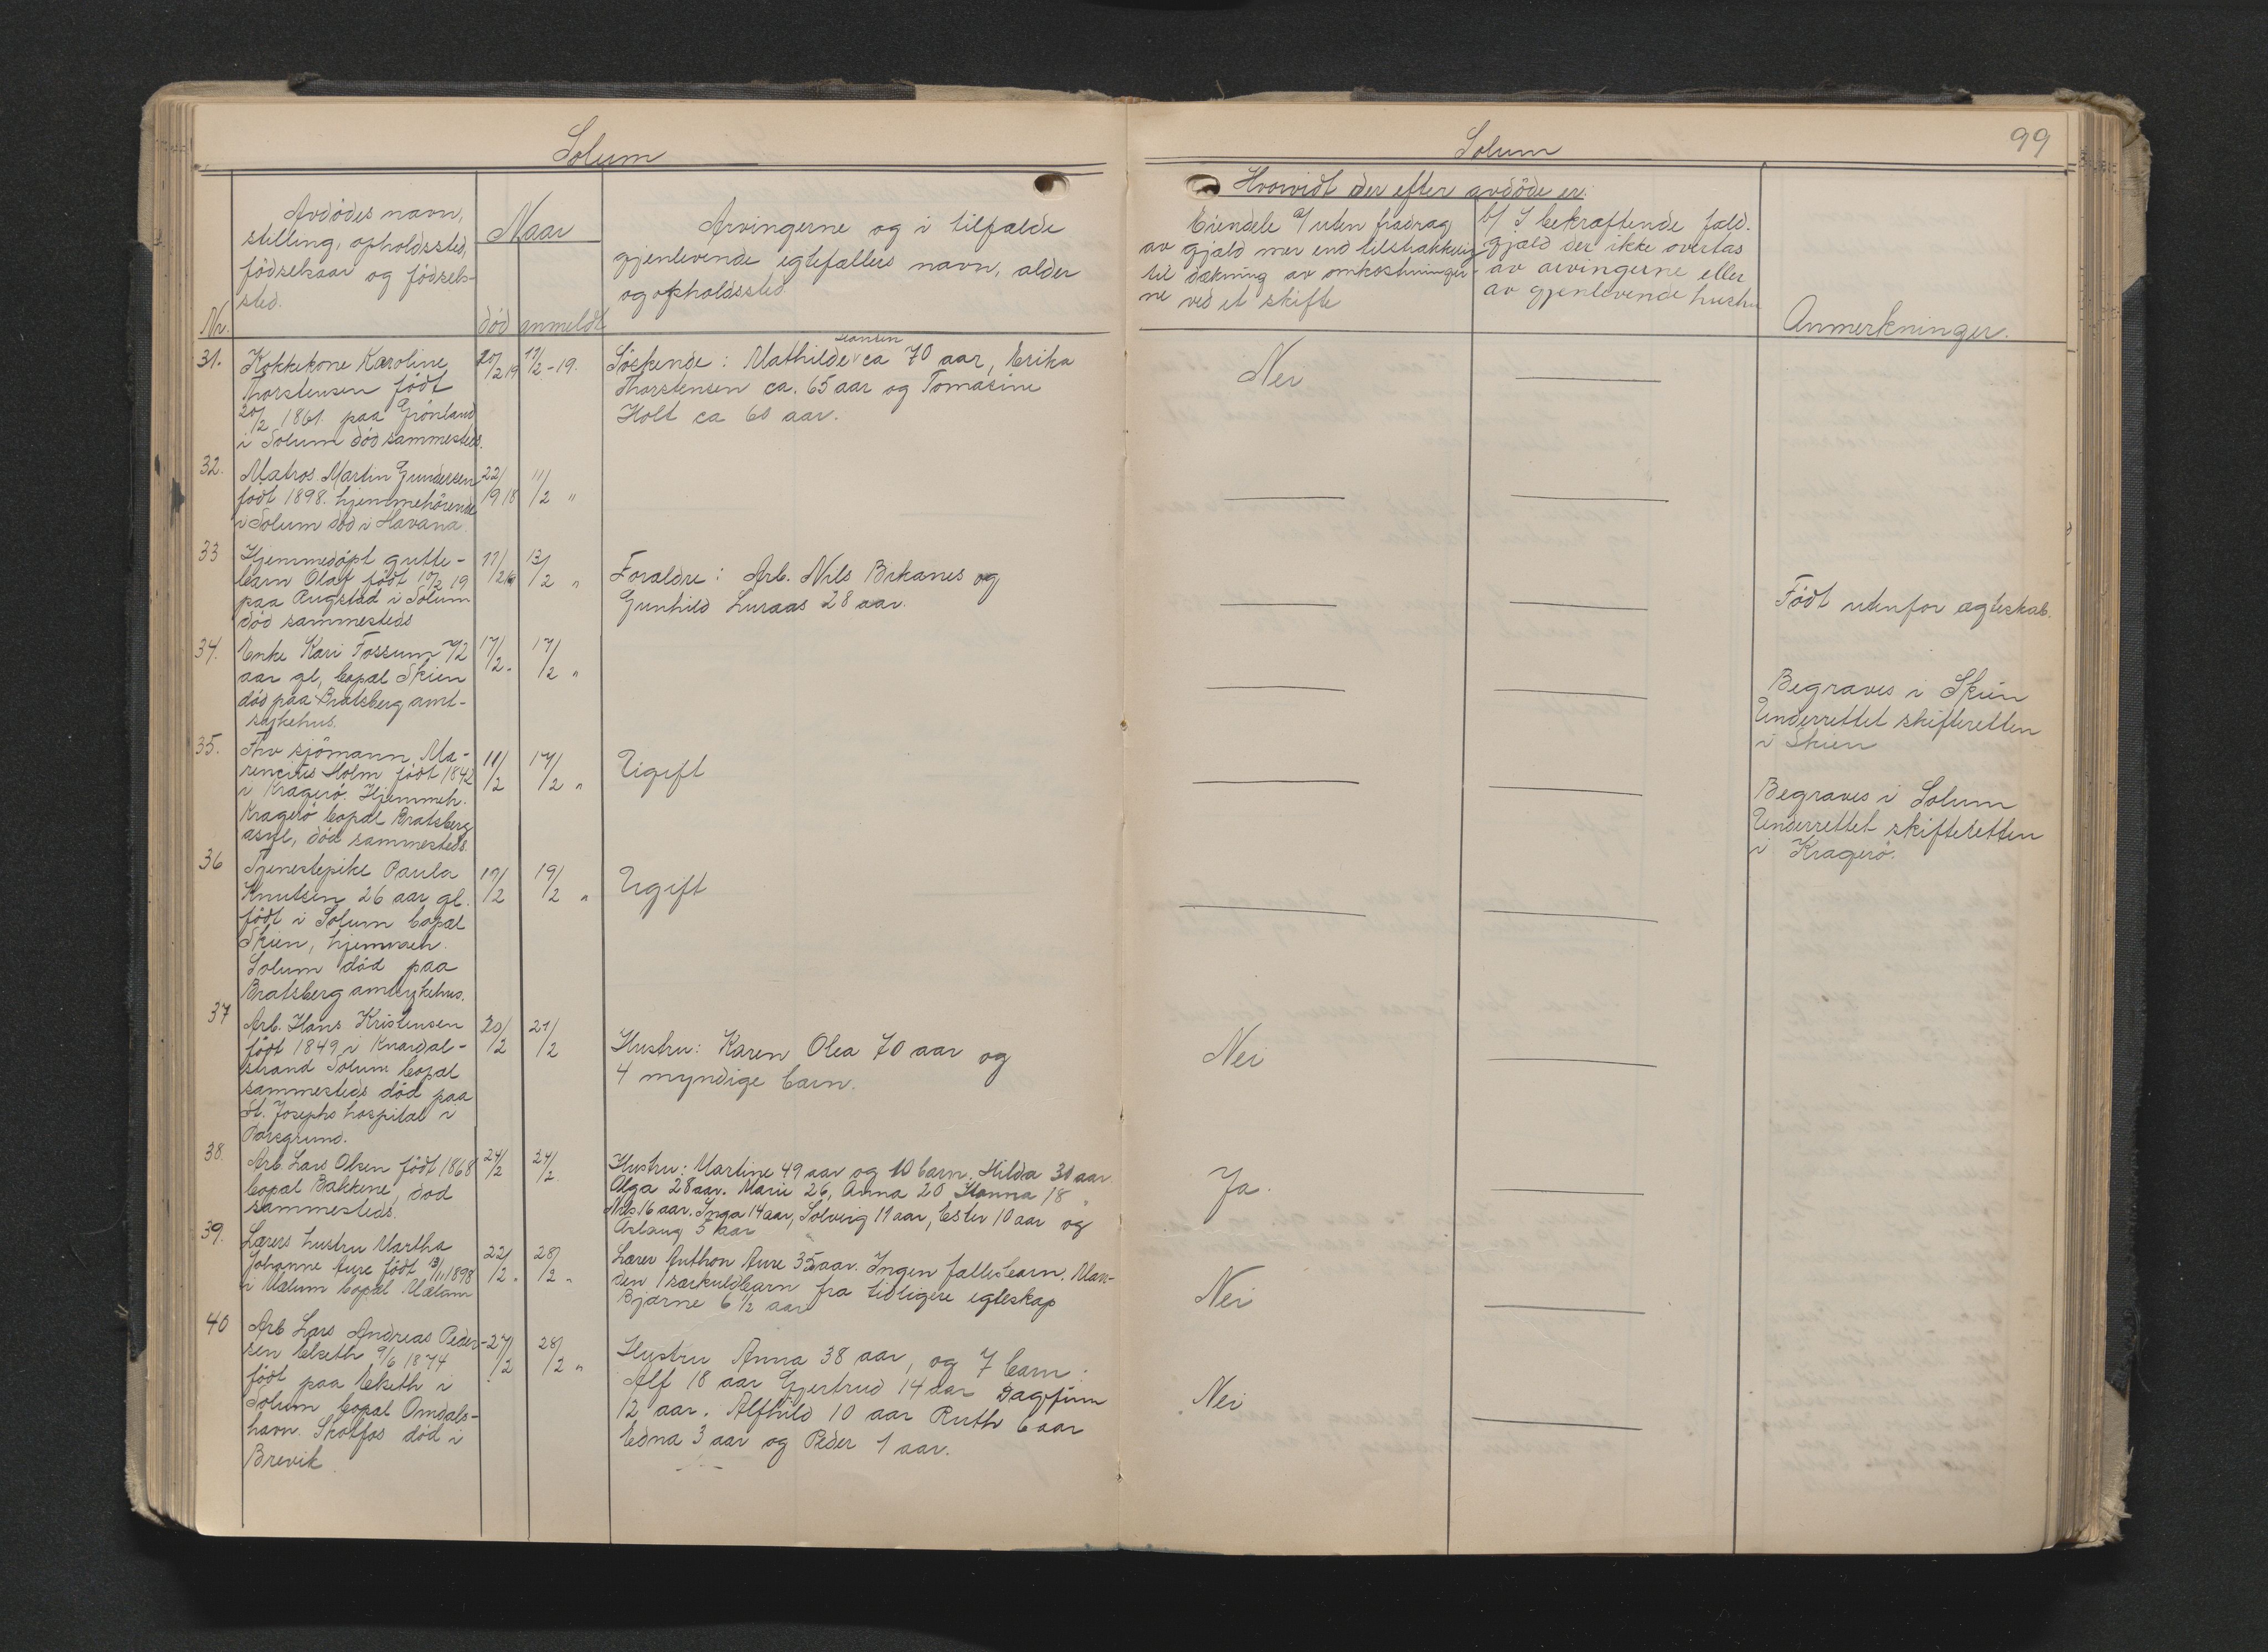 Solum
Avdödes navn,
stilling, opholdssted,
födselsaar og födsels-
sted.
Nr.
Naar
död anmeldt
Arvingerne og i tilfælde
gjenlevende egtefælles navn, alder
og opholdssted.
31. Kokkekone Karoline
Thorstensen födt
20/2 1861. paa Grönland
i Solum död sammesteds.
10/2 19 11/2-19.
Söskende: Mathilde Hansen ca 70 aar, Erika
Thorstensen ca. 65 aar og Tomasine
Holt ca 60 aar.
32. Matros Martin Gundersen
födt 1898. hjemmehörende
i Solum död i Havana.
22/ 1918 11/2 "
33 Hjemmedöpt gutte-
barn Olaf födt 10/2 19
paa Rugstad i Solum
död sammesteds
11/2 13/2 "
Forældre: Arb. Nils Birkanes og
Gunhild Luraas 28 aar.
34. Enke Kari Fossum 72
aar gl, bopæl Skien
död paa Bratsberg amt-
sykehus.
17/2. 17/2 "
35. Fhv sjömann, Ma-
rencius Holm födt 1842
i Kragerö. Hjemmeh.
Kragerö bopæl Bratsberg
asyl, död sammesteds.
11/2 17/2 "
Ugift
36 Tjenestepike Paula
Knutsen 26 aar gl.
födt i Solum bopæl
Skien, hjemvæh.
Solum död paa
Bratsberg amtsykehus.
19/2 19/2 "
Ugift
37 Arb. Hans Kristensen
födt 1849 i Knardal-
strand Solum bopæl
sammesteds död paa
St. Josephs hospital i
Porsgrund.
20/2 21/2
Hustru: Karen Olea 70 aar og
4 myndige barn.
38. Arb. Lars Olsen födt 1868
bopæl Bakkene, död
sammesteds.
24/2 24/2.
Hustru: Martine 49 aar og 10 barn. Hilda 30 aar.
Olga 28 aar. Marie 26, Anna 20 Hanna 18 "
Nils 16 aar. Inga 14 aar, Solveig 11 aar, Ester 10 aar og
Aslaug 5 aar
39. Lærers hustru Martha
Johanne Aure födt 13/11 1898
i Mælum bopæl Mælum
22/2. 28/2 "
Lærer Anthon Aure 35 aar. Ingen fællesbarn. Man-
den 1 særkuldbarn fra tidligere egteskap
Bjarne 6 1/2 aar
40 Arb Lars Andreas Peder-
sen Eketh 9/6 1874
födt paa Eketh i
Solum bopæl Omdals-
havn. Skotfos död i
Brevik.
27/2 28/2 "
Hustru Anna 38 aar, og 7 barn:
Alf 18 aar Gjertrud 14 aar Dagfinn
12 aar. Alfhild 10 aar Ruth 6 aar
Edna 3 aar og Peder 1 aar.
Solum
99
Hvorvidt der efter avdöde er:
Eiendele a/ uten fradrag
av gjæld mer end tilstrækkelig
til dækning av omkostninger-
ne ved et skifte
b/ I bekræftende fald.
gjæld der ikke overtas
av arvingerne eller
av gjenlevende hustru
Anmerkninger.
Nei
Födt utenfor ægteskab.
Begraves i Skien
Underrettet skifteretten
i Skien
Begraves i Solum
Underrettet skifteretten
i Kragerö.
Nei
Ja.
Nei
Nei